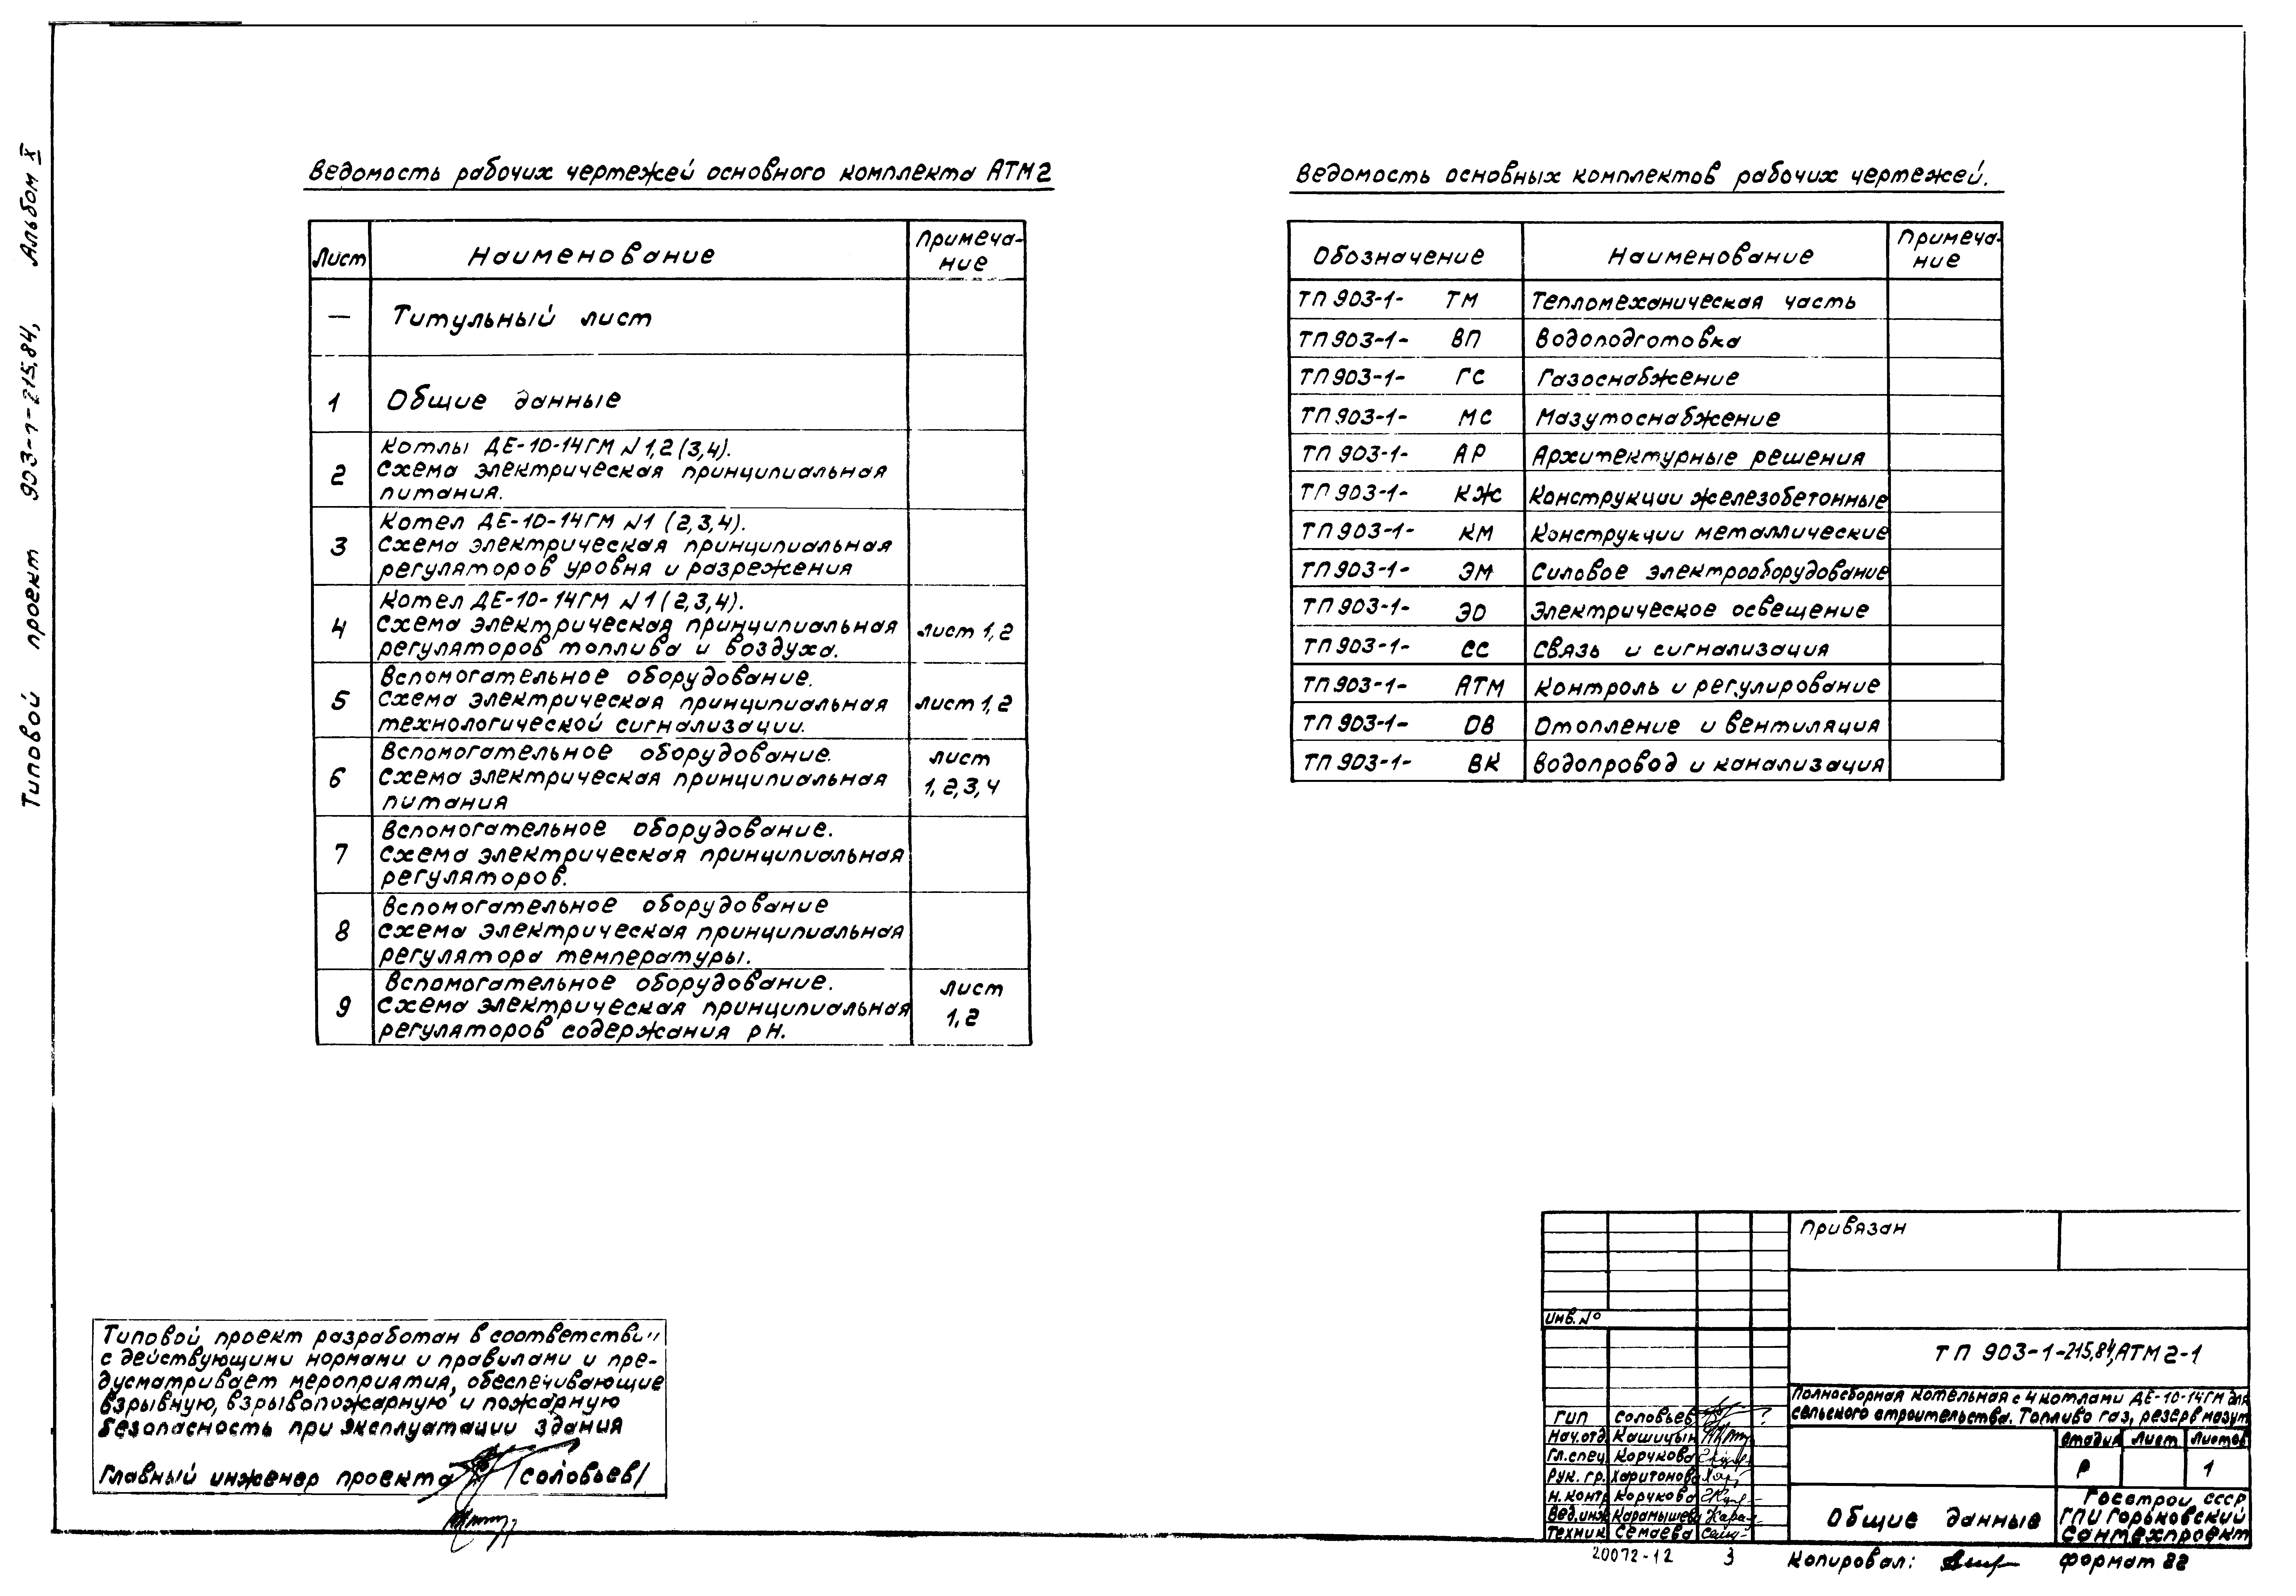 Типовой проект 903-1-215.84, Альбом X
Ведомость рабочих чертежей основного комплекта АТМ2
Лист Наименование Примеча-
ние
— Титульный лист
1 Общие данные
Котлы ДЕ-10-14ГМ №1,2 (3,4).
2 Схема электрическая принципиальная
питания.
Котел ДЕ-10-14ГМ №1 (2,3,4).
3 Схема электрическая принципиальная
регуляторов уровня и разрежения
Котел ДЕ-10-14ГМ №1 (2,3,4).
4 Схема электрическая принципиальная лист 1,2
регуляторов топлива и воздуха.
Вспомогательное оборудование.
5 Схема электрическая принципиальная лист 1,2
технологической сигнализации.
Вспомогательное оборудование. лист
6 Схема электрическая принципиальная 1,2,3,4
питания
Вспомогательное оборудование.
7 Схема электрическая принципиальная
регуляторов.
Вспомогательное оборудование
8 Схема электрическая принципиальная
регулятора температуры.
Вспомогательное оборудование. лист
9 Схема электрическая принципиальная 1,2
регуляторов содержания pH.
Ведомость основных комплектов рабочих чертежей.
Обозначение Наименование Примеча-
ние
ТП 903-1- ТМ Тепломеханическая часть
ТП 903-1- ВП Водоподготовка
ТП 903-1- ГС Газоснабжение
ТП 903-1- МС Мазутоснабжение
ТП 903-1- АР Архитектурные решения
ТП 903-1- КЖ Конструкции железобетонные
ТП 903-1- КМ Конструкции металлические
ТП 903-1- ЭМ Силовое электрооборудование
ТП 903-1- ЭО Электрическое освещение
ТП 903-1- СС Связь и сигнализация
ТП 903-1- АТМ Контроль и регулирование
ТП 903-1- ОВ Отопление и вентиляция
ТП 903-1- ВК Водопровод и канализация
Типовой проект разработан в соответствии
с действующими нормами и правилами и пре-
дусматривает мероприятия, обеспечивающие
взрывную, взрывопожарную и пожарную
безопасность при эксплуатации здания
Главный инженер проекта /Соловьев/
Привязан
Инв. №
ТП 903-1-215.84, АТМ2-1
Полносборная котельная с 4 котлами ДЕ-10-14ГМ для
сельского строительства. Топливо газ, резерв мазут
ГИП Соловьев
Нач.отд. Кашицын
Гл.спец. Корчкова
Рук. гр. Харитонова
Н. контр Корчкова
Вед.инж Карамышева
Техник Семаева
Стадия Лист Листов
Р 1
Общие данные
Госстрой СССР
ГПИ Горьковский
Сантехпроект
20072-12 3
Копировал: Формат 22